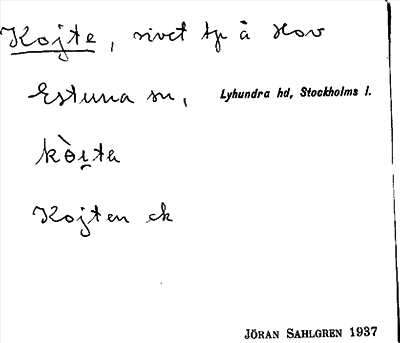 Kojte, rivet tp å Hov
Estuna sn, Lyhundra hd, Stockholms l.
kòi̯ta
Kojten ek
JÖRAN SAHLGREN 1937